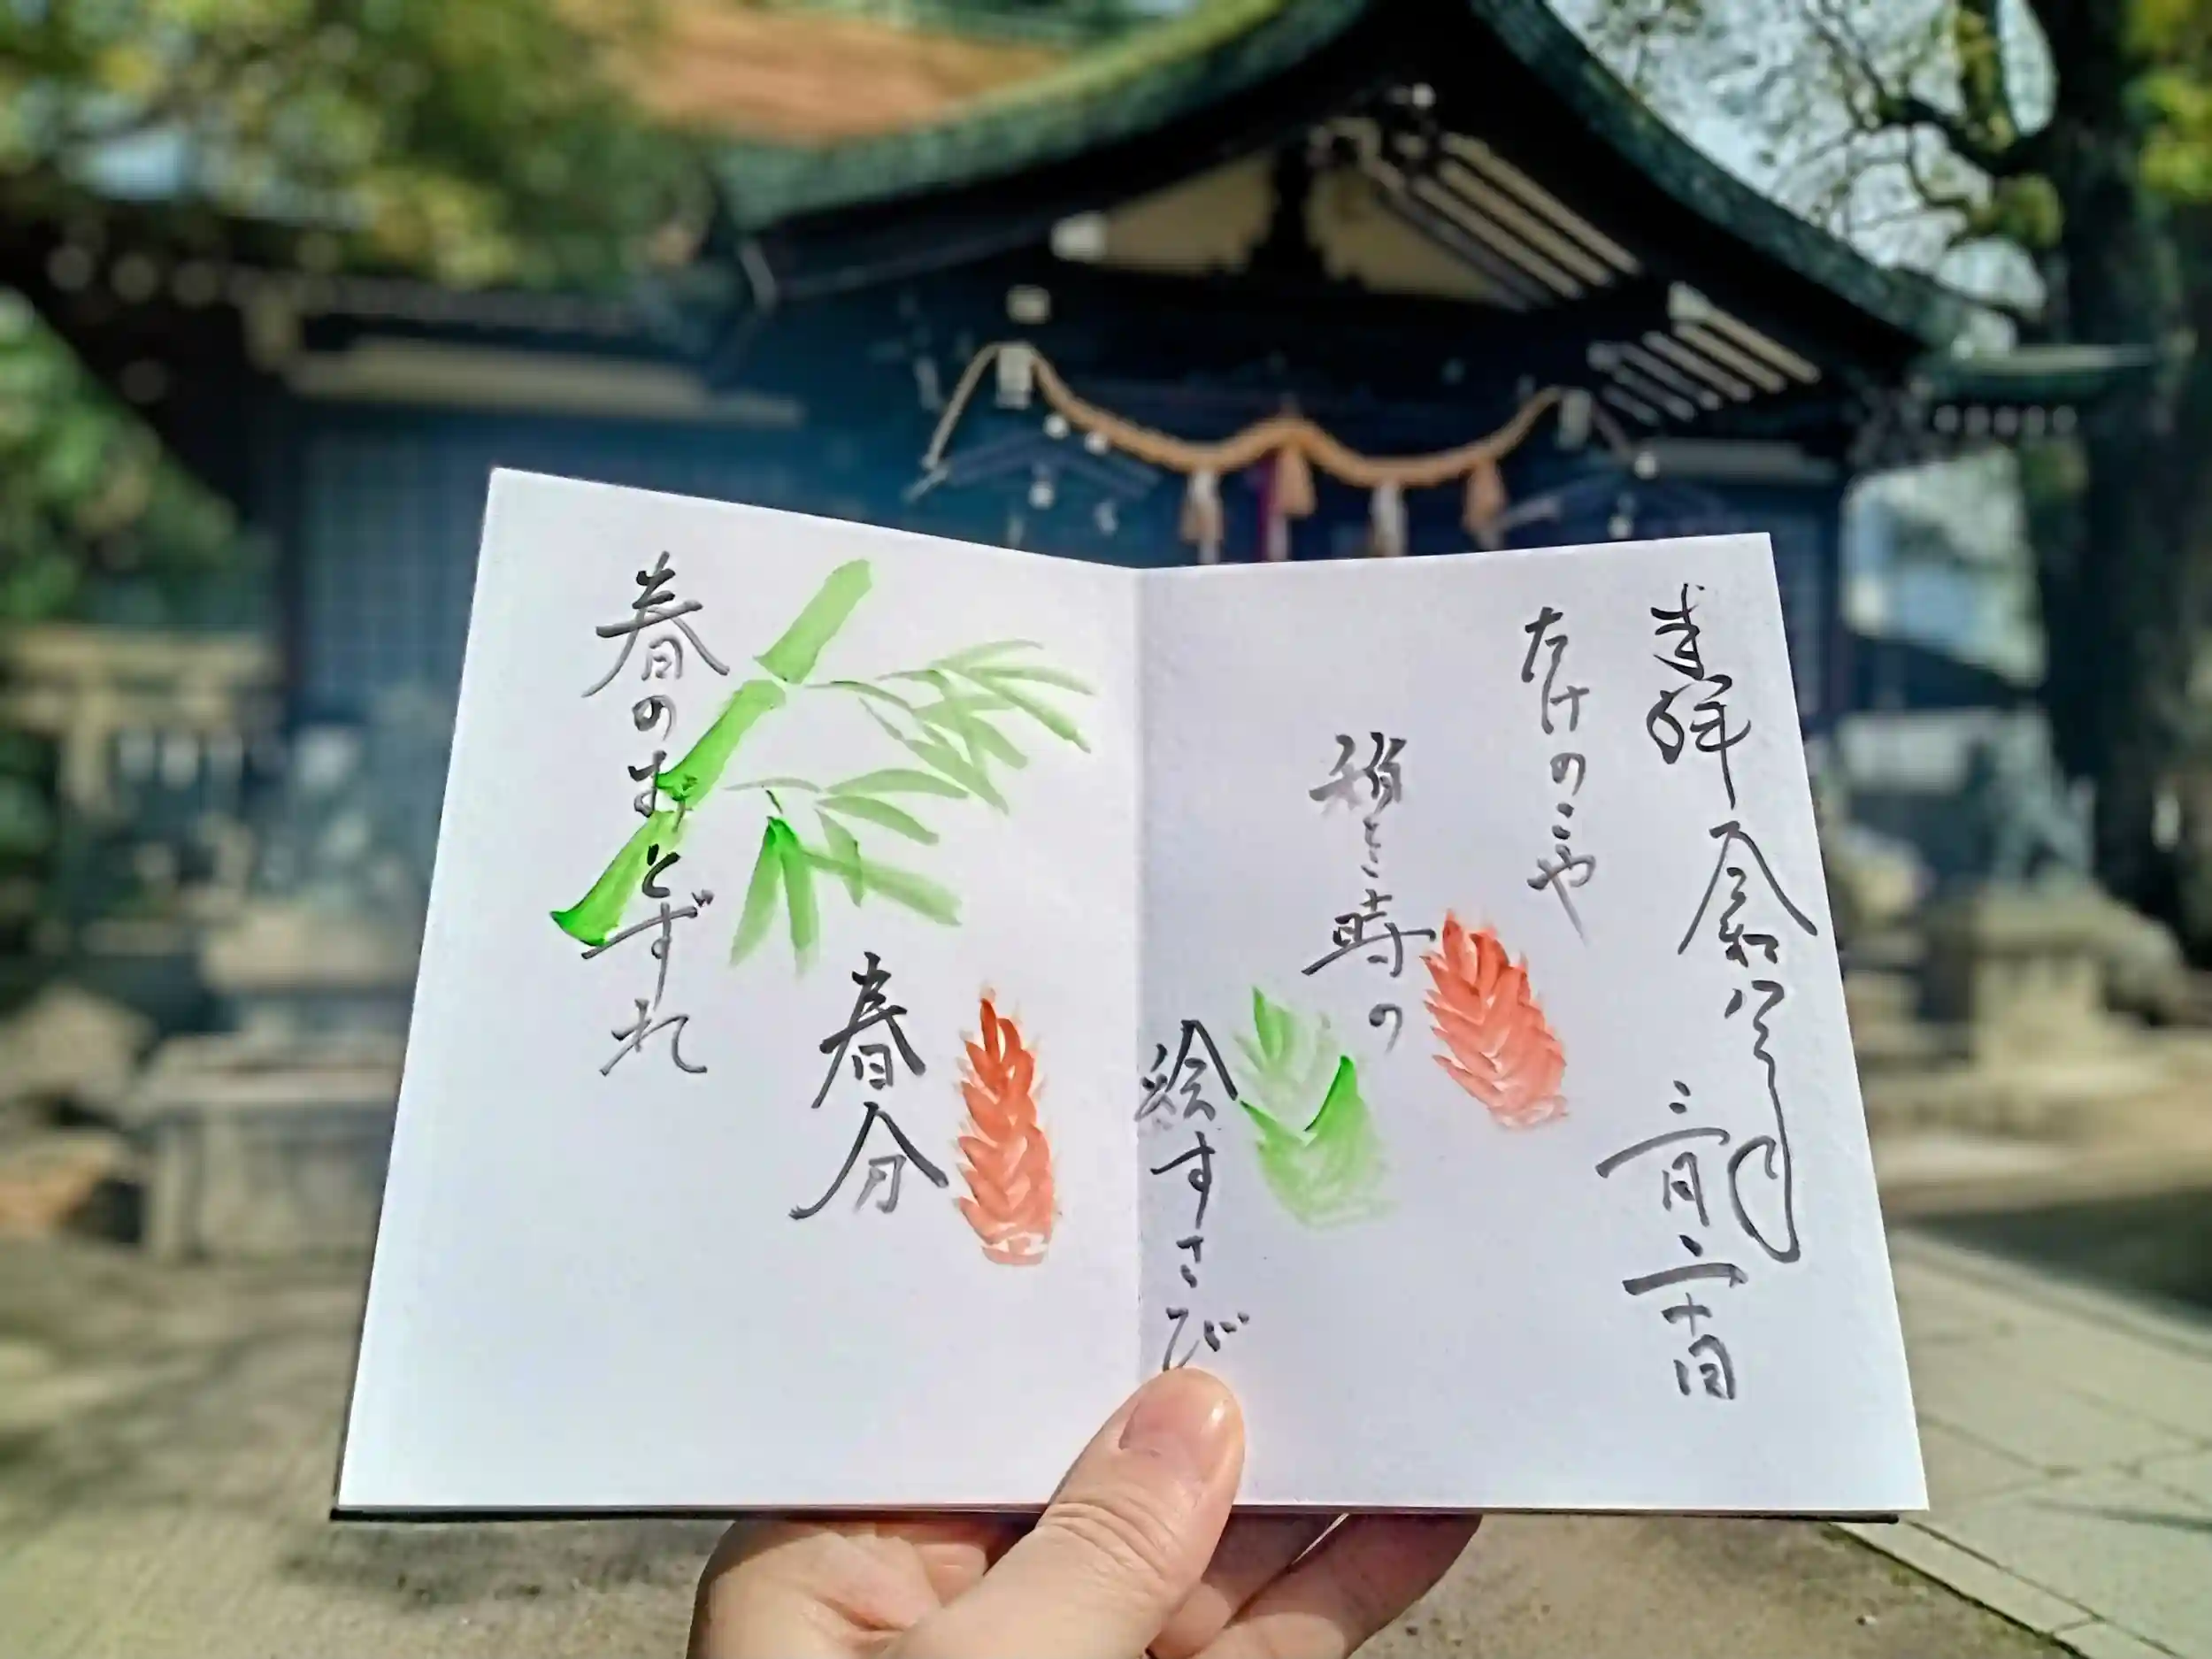 奉拝 令和八年 三月二十日
たけのこや
稍し時の
絵すさび
春分
春のおとずれ